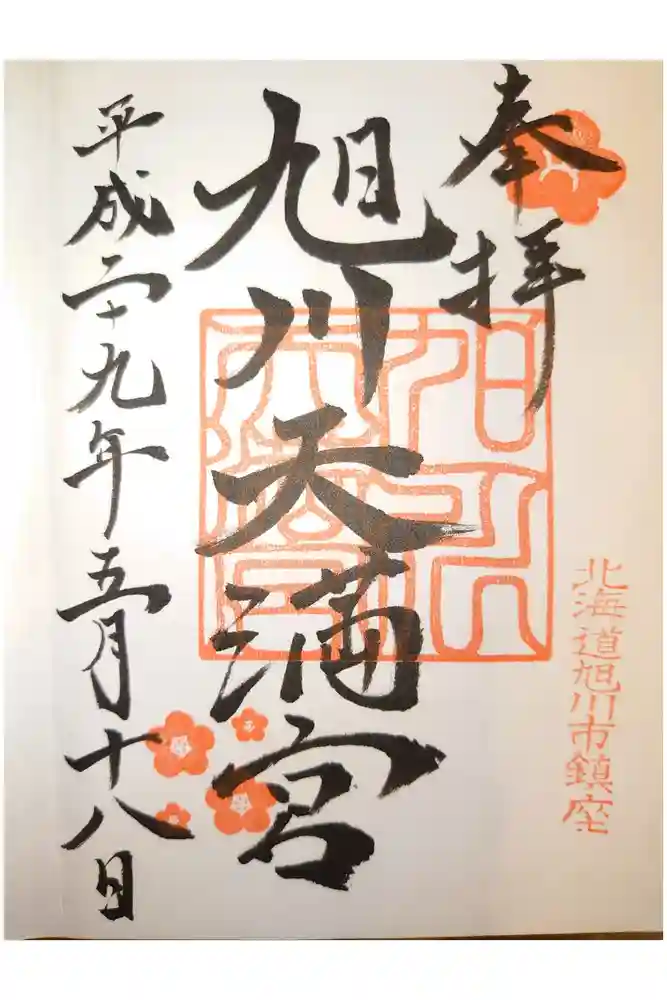 奉拝
北海道旭川市鎮座
旭川天満宮
平成二十九年五月十八日